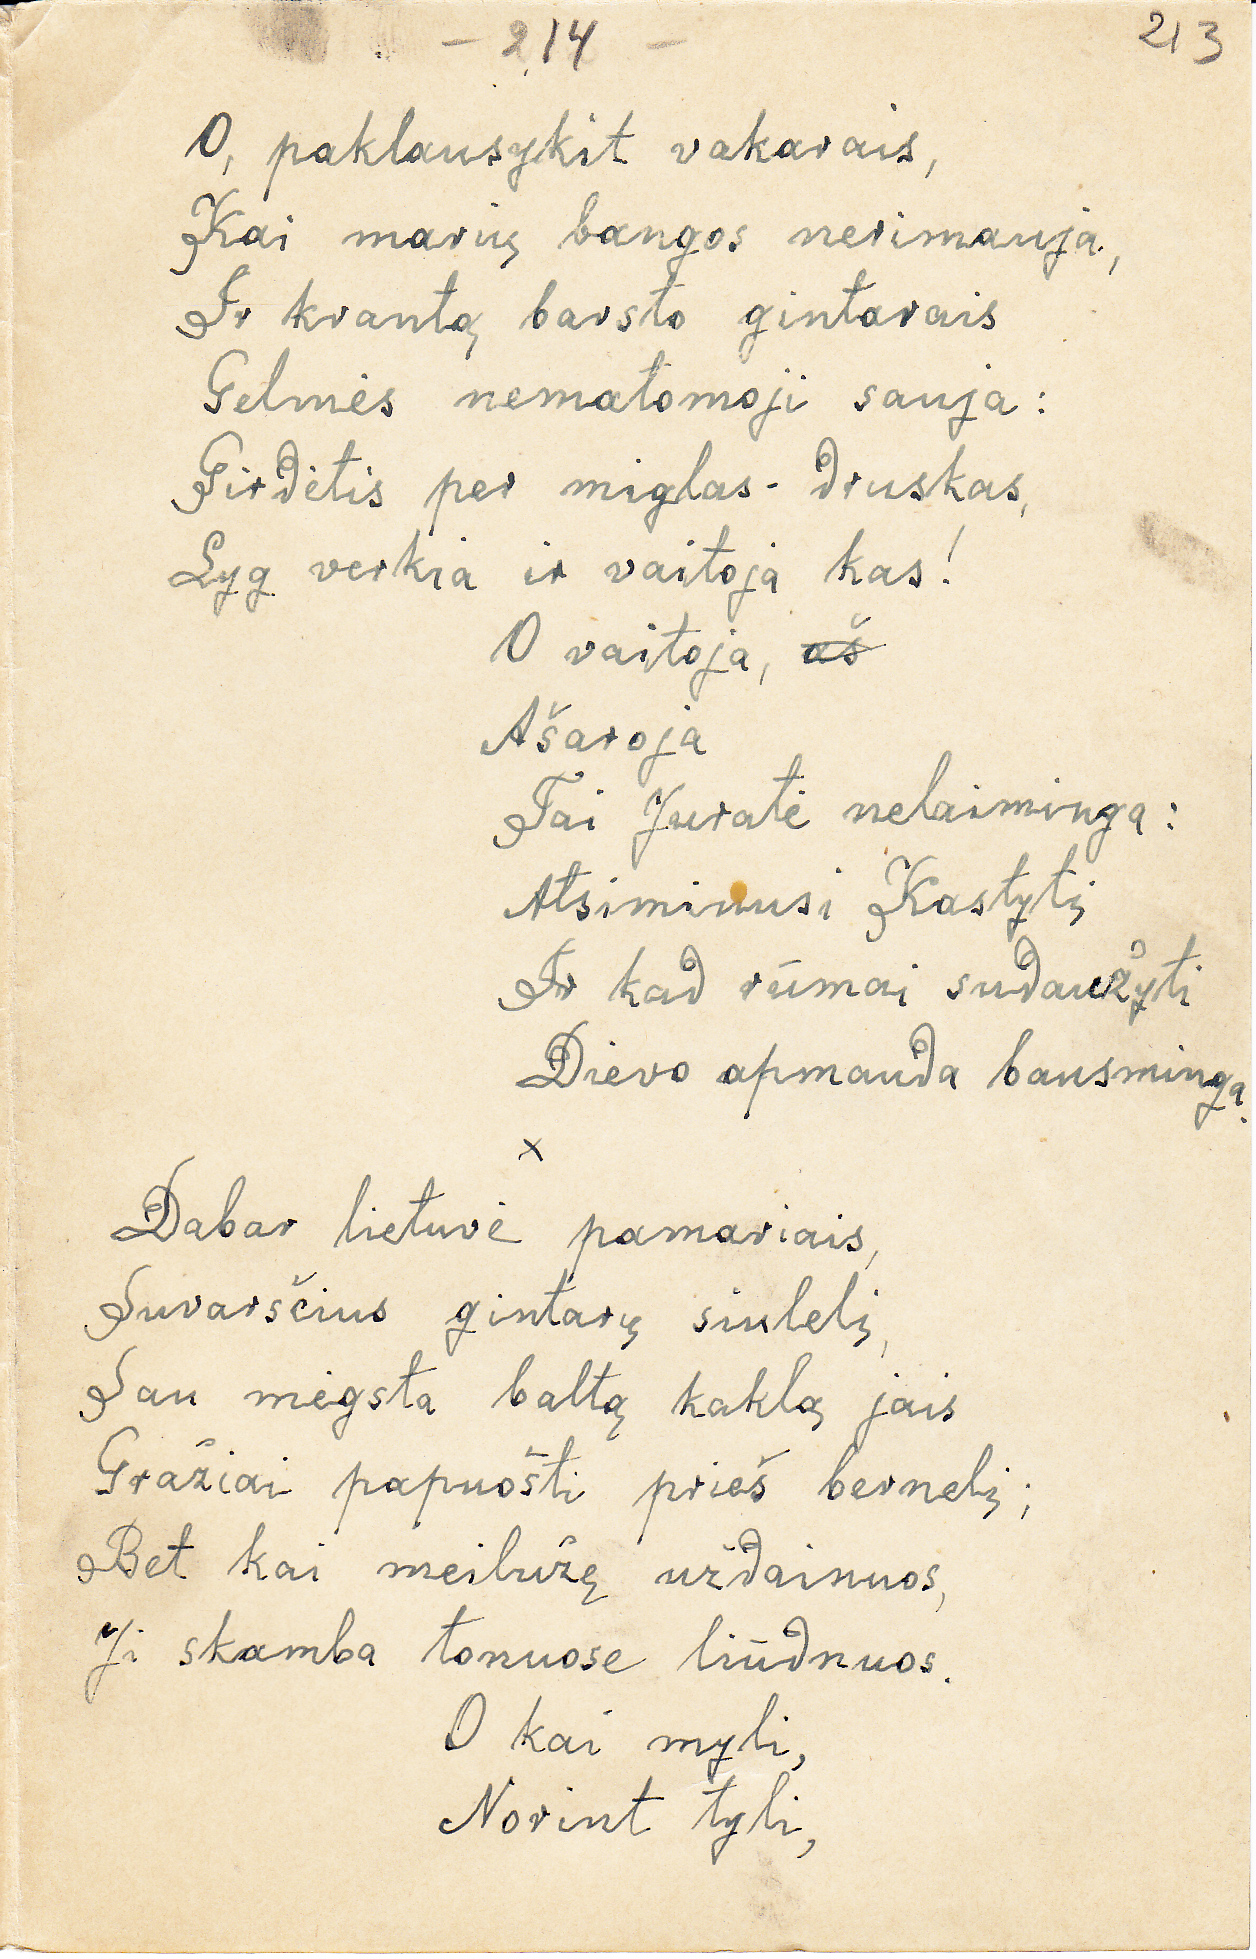 - 214 -
213
O, paklausykit vakarais,
Kai marių bangos nerimauja,
Ir krantą barsto gintarais
Gelmės nematomoji sauja:
Girdėtis per miglas-druskas,
Lyg verkia ir vaitoja kas!
O vaitoja, aš
Ašaroja
Tai Juratė nelaiminga:
Atsiminusi Kastytį
Ir kad rūmai sudaužyti
Dievo apmauda bausminga.
x
Dabar lietuvė pamariais,
Suvarščius gintarų siulelį,
Sau mėgsta baltą kaklą jais
Gražiai papuošti prieš bernelį;
Bet kai meilužę uždainuos,
Ji skamba tonuose liūdnuos.
O kai myli,
Norint tyli,